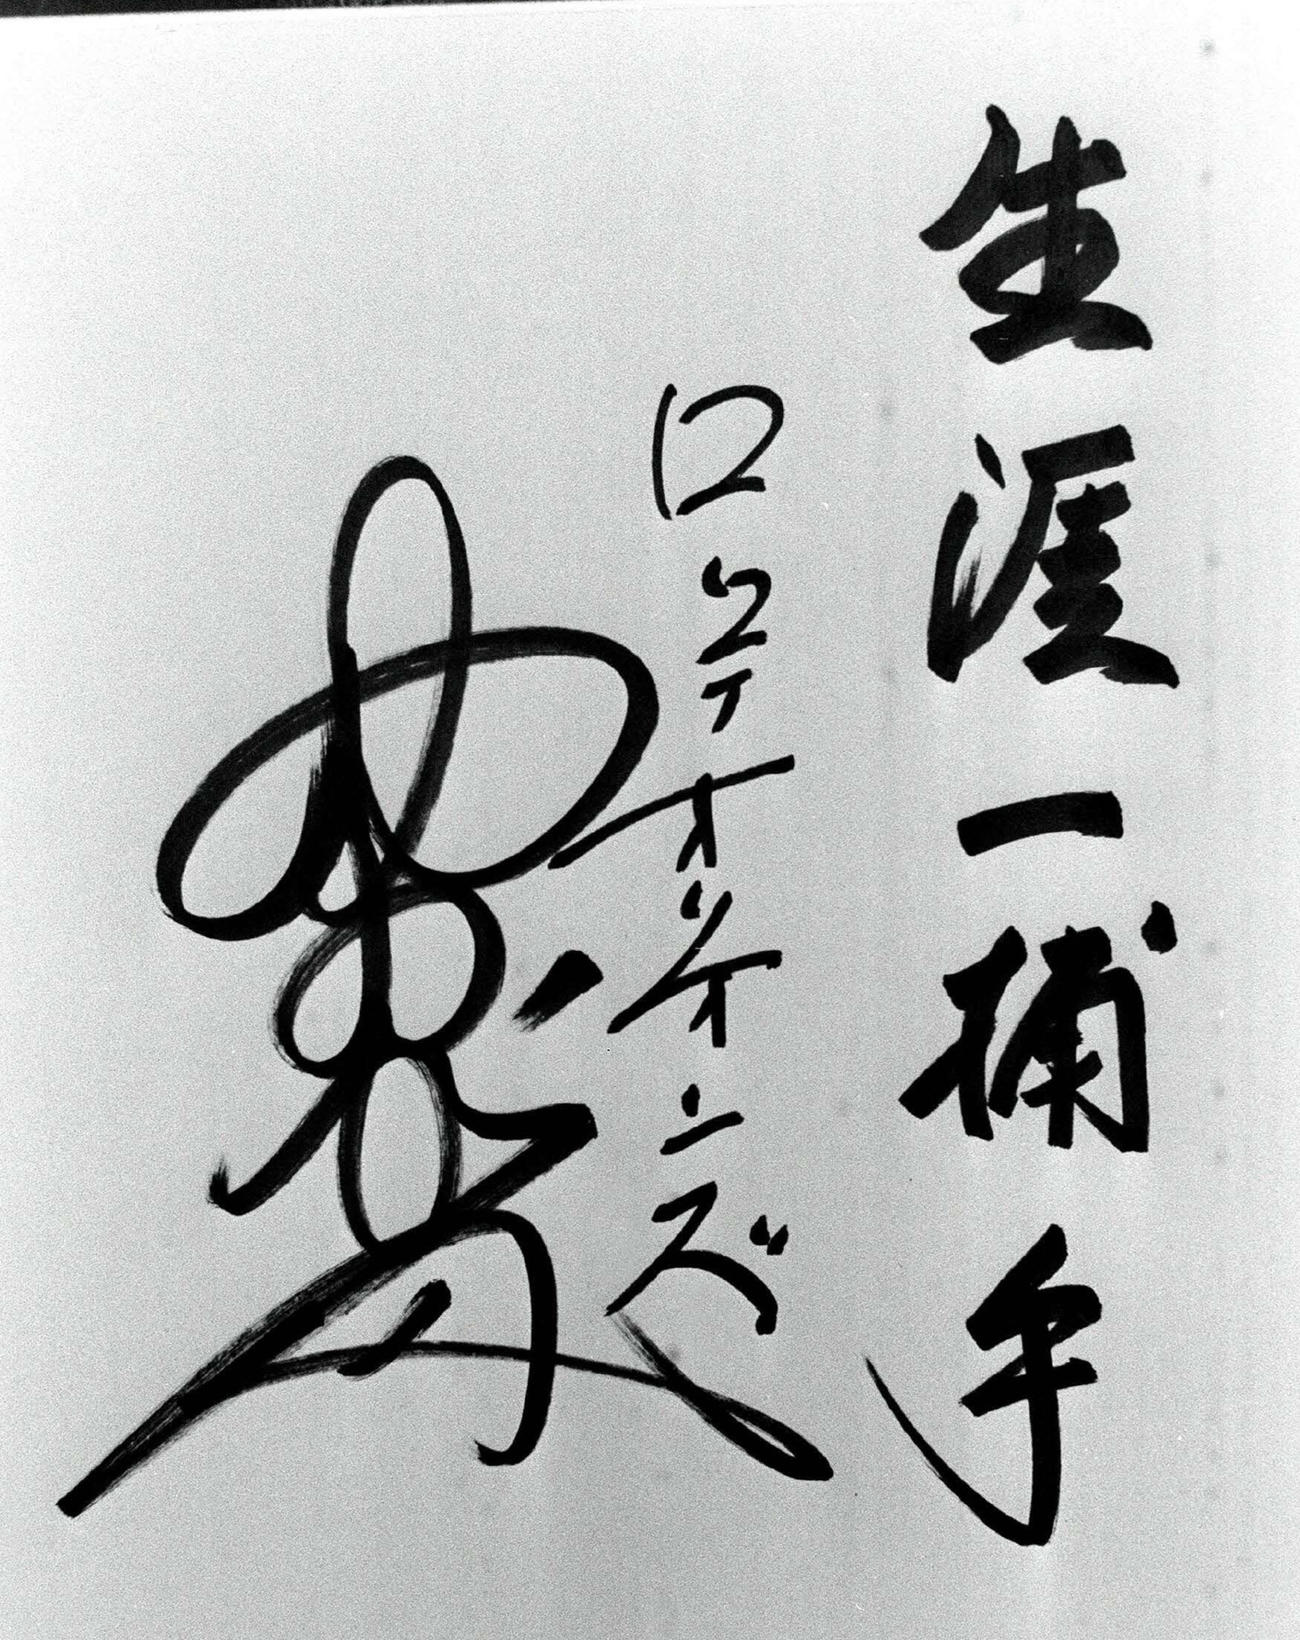 生涯一捕手
ロッテオリオンズ